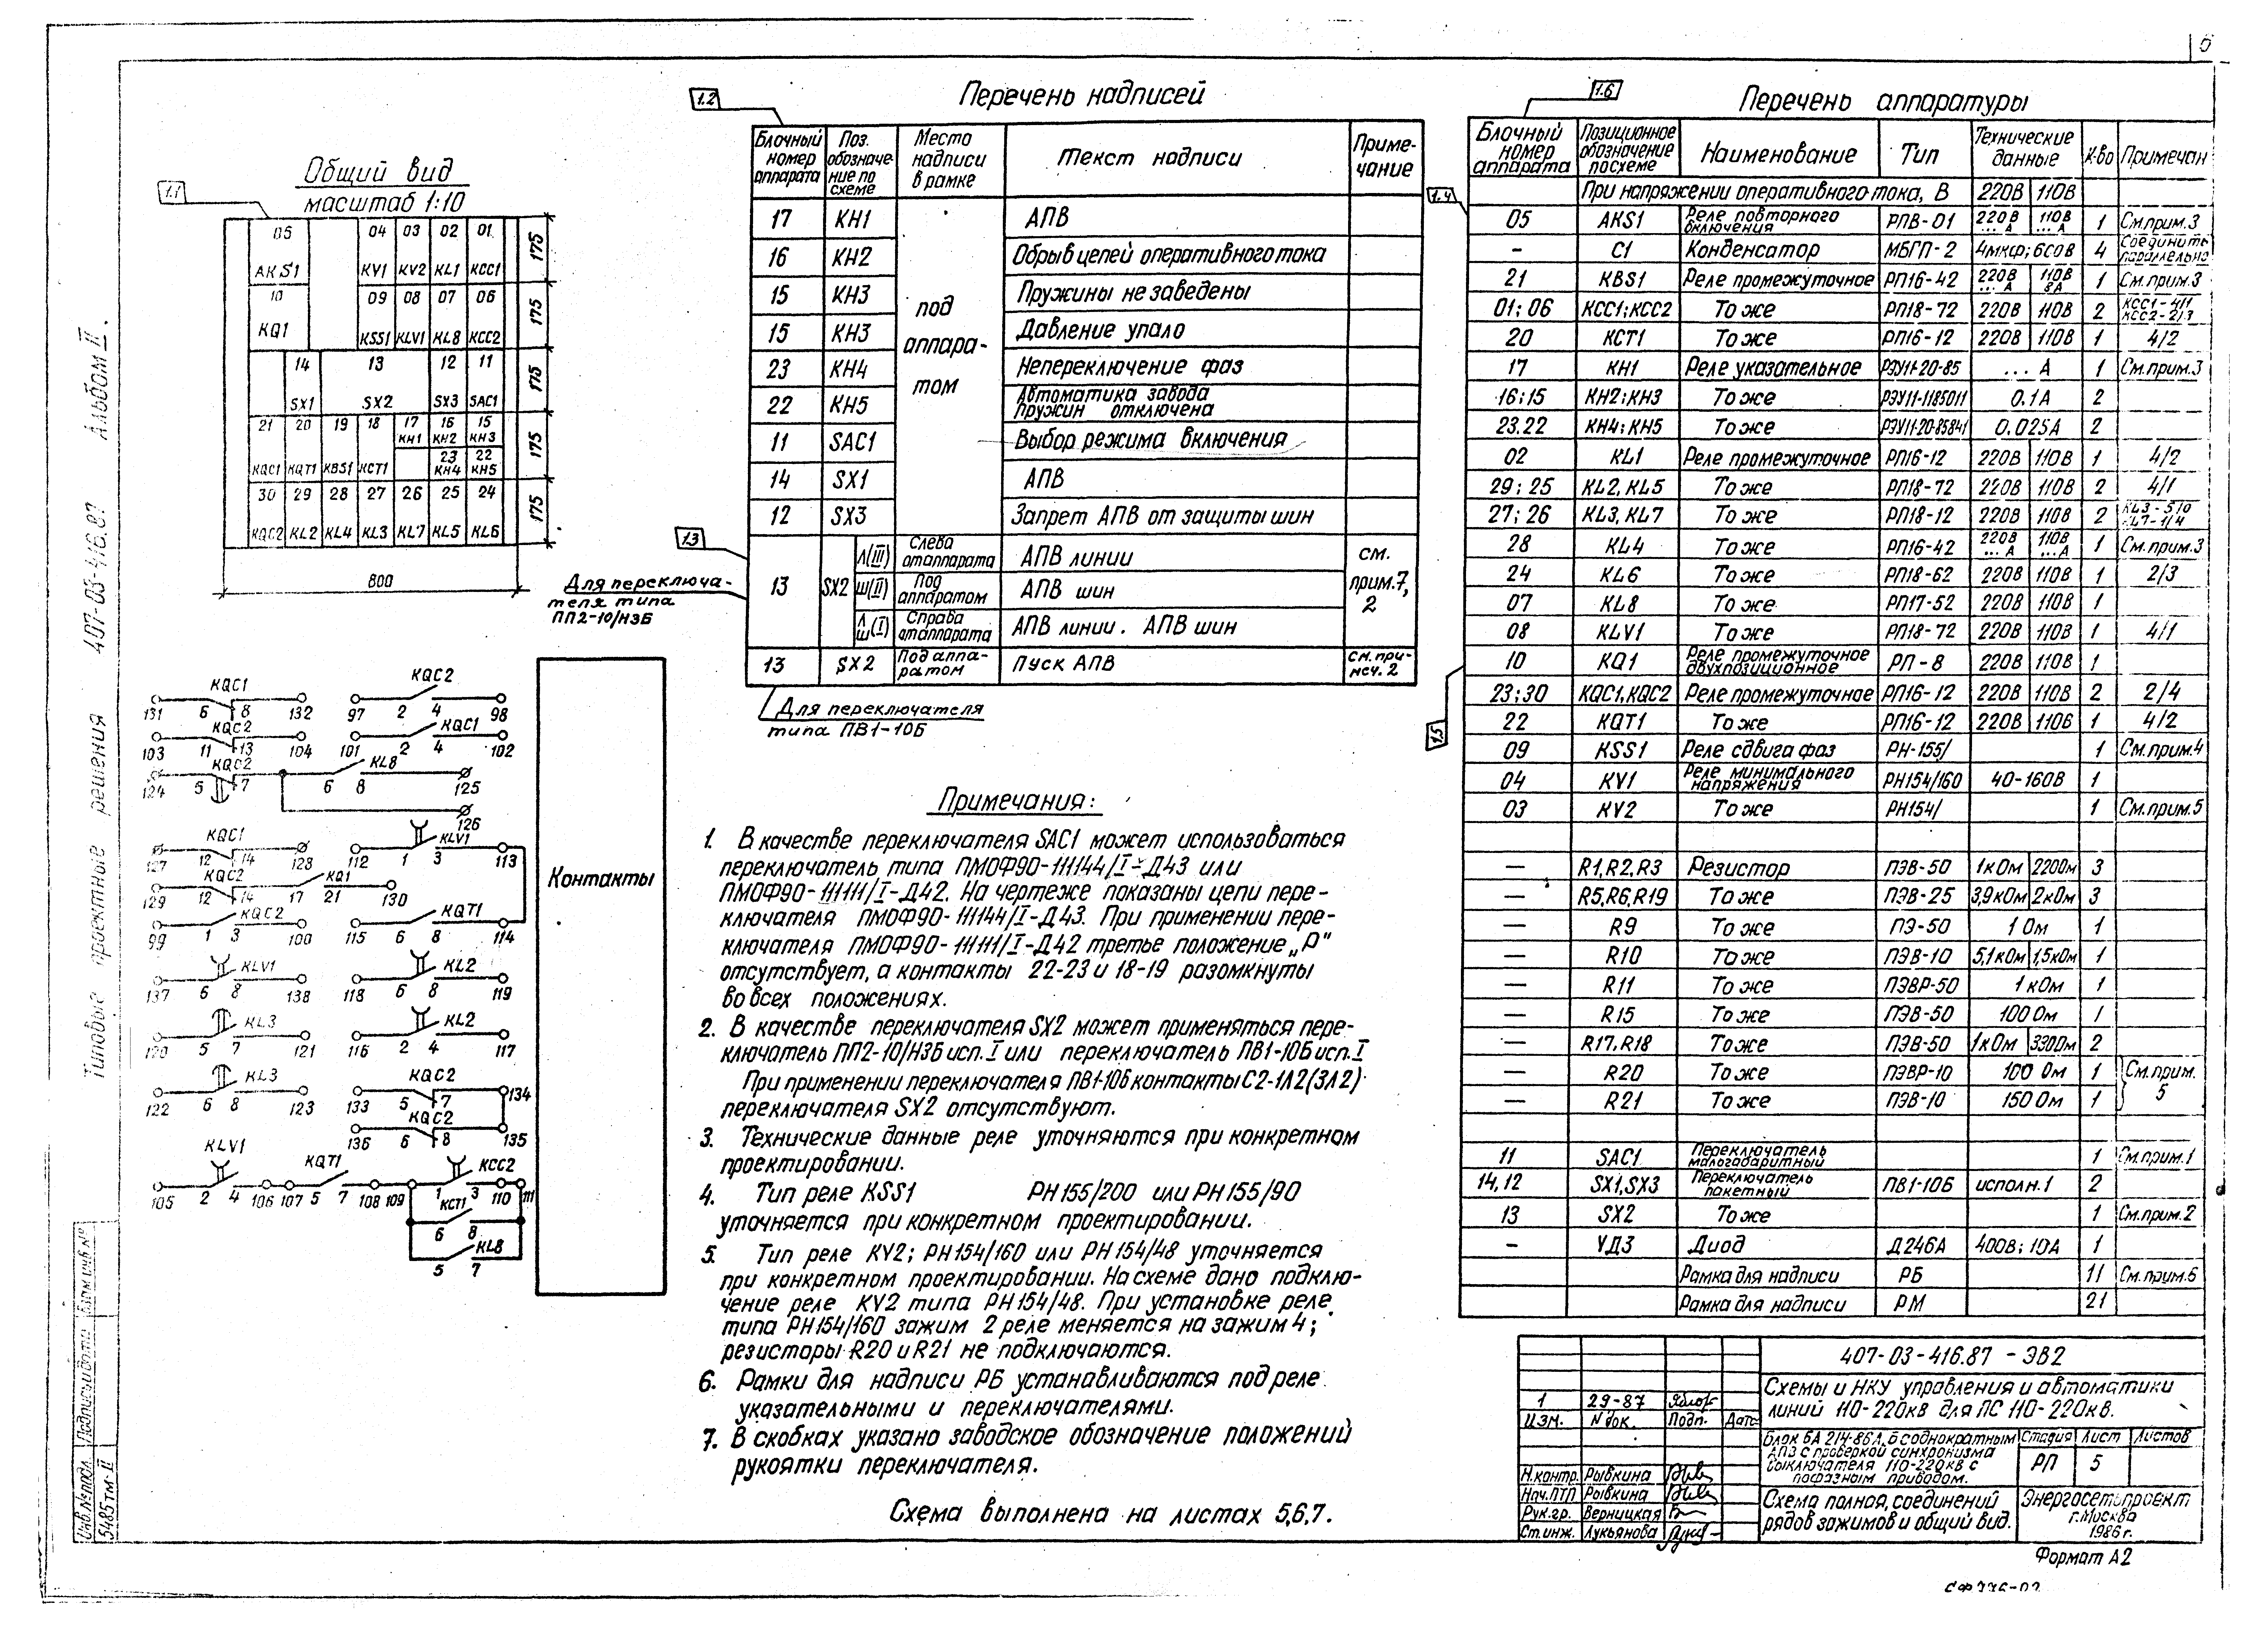 Общий вид
масштаб 1:10
1.1
05 04 03 02 01
AKS1 KV1 KV2 KL1 KCC1
10 09 08 07 06
KQ1 KSS1 KLV1 KL8 KCC2
14 13 12 11
SX1 SX2 SX3 SAC1
21 20 19 18 17 16 15
KH1 KH2 KH3
23 22
KQC1 KQT1 KBS1 KCT1 KH4 KH5
30 29 28 27 26 25 24
KQC2 KL2 KL4 KL3 KL7 KL5 KL6
175
175
175
175
175
800
KQC1 KQC2
131 6 8 132 97 2 4 98
KQC2 KQC1
103 11 13 104 101 2 4 102
KQC2 KL8
124 5 7 6 8 125
126
KQC1 KLV1
127 12 14 128 112 1 3 113
KQC2 KQ1
129 12 14 17 21 130
KQC2 KQT1
99 1 3 100 115 6 8 114
KLV1 KL2
137 6 8 138 118 6 8 119
KL3 KL2
120 5 7 121 116 2 4 117
KL3 KQC2
122 6 8 123 133 5 7 134
KQC2
136 6 8 135
KLV1 KQT1 KCC2
105 2 4 106 107 5 7 108 109 1 3 110 111
KCT1
6 8
KL8
5 7
Контакты
1.2
Перечень надписей
Блочный номер аппарата Поз. обозначение по схеме Место надписи в рамке Текст надписи Примечание
под аппаратом
17 KH1 АПВ
16 KH2 Обрыв цепей оперативного тока
15 KH3 Пружины не заведены
15 KH3 Давление упало
23 KH4 Непереключение фаз
22 KH5 Автоматика завода пружин отключена
11 SAC1 Выбор режима включения
14 SX1 АПВ
12 SX3 Запрет АПВ от защиты шин
1.3
Для переключа-
теля типа
ПП2-10/Н3Б
13 SX2 Л(III) Слева от аппарата АПВ линии см. прим.7, 2
Ш(II) Под аппаратом АПВ шин
Л Ш(I) Справа от аппарата АПВ линии. АПВ шин
13 SX2 Под аппаратом Пуск АПВ см. примеч. 2
Для переключателя
типа ПВ1-10Б
Примечания:
1. В качестве переключателя SAC1 может использоваться
переключатель типа ПМОФ90-111144/I-Д43 или
ПМОФ90-111111/I-Д42. На чертеже показаны цепи пере-
ключателя ПМОФ90-111144/I-Д43. При применении пере-
ключателя ПМОФ90-111111/I-Д42 третье положение „Р"
отсутствует, а контакты 22-23 и 18-19 разомкнуты
во всех положениях.
2. В качестве переключателя SX2 может применяться пере-
ключатель ПП2-10/Н3Б исп. I или переключатель ПВ1-10Б исп. I
При применении переключателя ПВ1-10Б контакты С2-1Л2(3Л2)
переключателя SX2 отсутствуют.
3. Технические данные реле уточняются при конкретном
проектировании.
4. Тип реле KSS1 РН155/200 или РН155/90
уточняется при конкретном проектировании.
5. Тип реле KV2; РН154/160 или РН154/48 уточняется
при конкретном проектировании. На схеме дано подклю-
чение реле KV2 типа РН154/48. При установке реле
типа РН154/160 зажим 2 реле меняется на зажим 4;
резисторы R20 и R21 не подключаются.
6. Рамки для надписи РБ устанавливаются под реле
указательными и переключателями.
7. В скобках указано заводское обозначение положений
рукоятки переключателя.
Схема выполнена на листах 5,6,7.
1.6
Перечень аппаратуры
Блочный номер аппарата Позиционное обозначение по схеме Наименование Тип Технические данные К-во Примечан
1.4
При напряжении оперативного тока, В 220В 110В
05 AKS1 Реле повторного включения РПВ-01 220В ...А 110В ...А 1 См.прим.3
— C1 Конденсатор МБГП-2 4мкф; 600В 4 Соединить параллельно
21 KBS1 Реле промежуточное РП16-42 220В ...А 110В 8А 1 См.прим.3
01; 06 KCC1;KCC2 То же РП18-72 220В 110В 2 KCC1-4/1 KCC2-2/3
20 KCT1 То же РП16-12 220В 110В 1 4/2
17 KH1 Реле указательное РЭУ11-20-85 ... А 1 См.прим.3
16;15 KH2;KH3 То же РЭУ11-1185011 0.1А 2
23.22 KH4;KH5 То же РЭУ11-20-85841 0.025А 2
02 KL1 Реле промежуточное РП16-12 220В 110В 1 4/2
29; 25 KL2, KL5 То же РП18-72 220В 110В 2 4/1
27; 26 KL3, KL7 То же РП18-12 220В 110В 2 KL3-5/0 KL7-1/4
28 KL4 То же РП16-42 220В ...А 110В ...А 1 См.прим.3
24 KL6 То же РП18-62 220В 110В 1 2/3
07 KL8 То же РП17-52 220В 110В 1
08 KLV1 То же РП18-72 220В 110В 1 4/1
10 KQ1 Реле промежуточное двухпозиционное РП-8 220В 110В 1
1.5
23;30 KQC1,KQC2 Реле промежуточное РП16-12 220В 110В 2 2/4
22 KQT1 То же РП16-12 220В 110В 1 4/2
09 KSS1 Реле сдвига фаз РН-155/ 1 См.прим.4
04 KV1 Реле минимального напряжения РН154/160 40-160В 1
03 KV2 То же РН154/ 1 См.прим.5
— R1,R2,R3 Резистор ПЭВ-50 1кОм 220Ом 3
— R5,R6,R19 То же ПЭВ-25 3,9кОм 2кОм 3
— R9 То же ПЭ-50 1 Ом 1
— R10 То же ПЭВ-10 5,1кОм 1,5кОм 1
— R11 То же ПЭВР-50 1 кОм 1
— R15 То же ПЭВ-50 100 Ом 1
— R17,R18 То же ПЭВ-50 1кОм 330Ом 2
— R20 То же ПЭВР-10 100 Ом 1 См.прим. 5
— R21 То же ПЭВ-10 150 Ом 1
11 SAC1 Переключатель малогабаритный 1 См.прим.1
14,12 SX1,SX3 Переключатель пакетный ПВ1-10Б исполн.1 2
13 SX2 То же 1 См.прим.2
— УД3 Диод Д246А 400В; 10А 1
Рамка для надписи РБ 11 См.прим.6
Рамка для надписи РМ 21
407-03-416.87 - ЭВ2
Схемы и НКУ управления и автоматики
линий 110-220кв для ПС 110-220кв.
1 29-87
Изм. N док. Подп. Дата
Блок БА 214-86А, б с однократным
АПВ с проверкой синхронизма
выключателя 110-220кв с
пофазным приводом.
Стадия Лист Листов
РП 5
Н.контр. Рывкина
Нач.ПТП Рывкина
Рук.гр. Верницкая
Ст.инж. Лукьянова
Схема полная, соединений
рядов зажимов и общий вид.
Энергосетьпроект
г.Москва
1986г.
Формат А2
Типовые проектные решения 407-03-416.87 Альбом II.
Инв.№ подл. Подпись и дата Взам.инв.№
5485тм-II